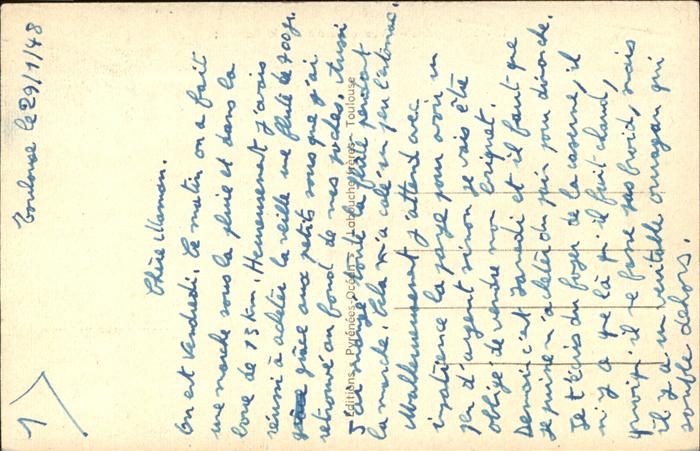 1
Toulouse le 29/1/48
Chère Maman.
On est vendredi. Ce matin on a fait
une marche sous la pluie et dans la
boue de 15 km. Heureusement j'avais
réussi à acheter la veille une flute de 700 gr.
grâce aux petits sous que j'ai
retrouvé au fond de mes poches. Aussi
J'ai mangé toute la flute pendant
la marche. Cela m'a calé un peu l'estomac.
Malheureusement j'attend avec
impatience la paye pour avoir un
peu d'argent sinon je vais être
obligé de vendre mon briquet.
Demain c'est samedi et il faut que
je puisse m'acheter du pain pour dimanche.
Je t'écris du foyer de la caserne, il
n'y a que là qu'il fait chaud,
quoiqu'il ne fasse pas froid, mais
il y a un véritable ouragan qui
souffle dehors.
Editions Pyrénées-Océan - Labouche Frères - Toulouse